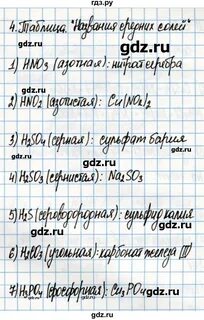 гдз.ру
4. Таблица. "Названия средних солей"
gdz.ru
1) HNO3 (азотная): нитрат серебра
gdz.ru
2) HNO2 (азотистая): Cu(NO2)2
gdz.ru
3) H2SO4 (серная): сульфат бария
gdz.ru
4) H2SO3 (сернистая): Na2SO3
gdz.ru
5) H2S (сероводородная): сульфид калия
gdz.ru
6) H2CO3 (угольная): карбонат железа (II)
gdz.ru
7) H3PO4 (фосфорная): Ca3PO4
gdz.ru